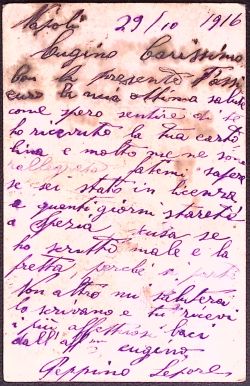 Napoli 29/10 1916
Cugino Carissimo
con la presente t'assi
curo la mia ottima salute
come spero sentire di te
ho ricevuto la tua carto
lina e molto me ne son
rallegrato fatemi sapere
se sei stato in licenza
e quanti giorni starete
a Spezia scusa se
ho scritto male e la
fretta, perchè
con altro mi saluterai
lo scrivano e tu ricevi
i più affettuosi baci
dall'aff cugino
Peppino